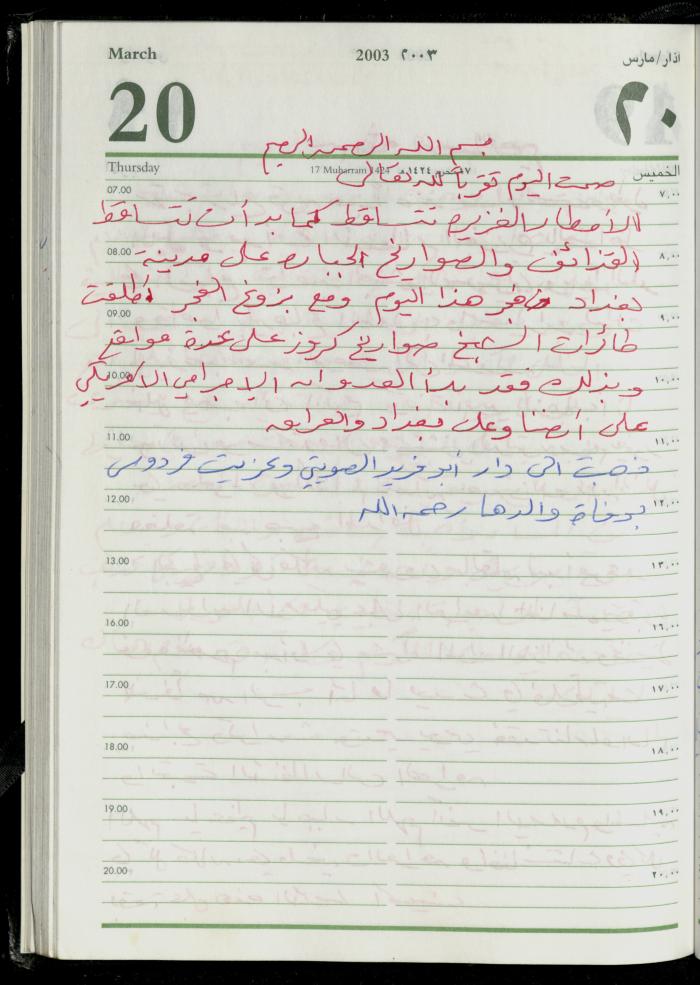 March 2003 ٢٠٠٣ اذار/مارس
20 ٢٠
بسم الله الرحمن الرحيم
Thursday 17 Muharram 1424 ١٧ محرم ١٤٢٤هـ الخميس
صمت اليوم تقرباً لله تعالى
07.00 ٧,٠٠
الأمطار الغزيره تتساقط كما بدأت تتساقط
08.00 ٨,٠٠
القذائف والصواريخ الجباره على مدينة
بغداد فجر هذا اليوم ومع بزوغ الفجر أطلقت
09.00 ٩,٠٠
طائرات الشبح صواريخ كروز على عدة مواقع
10.00 ١٠,٠٠
وبذلك فقد بدأ العدوان الإجرامي الامريكي
على أرضنا وعلى بغداد والعراق
11.00 ١١,٠٠
ذهبت الى دار أبو فريد الصويتي وعزيت فردوس
12.00 ١٢,٠٠
بوفاة والدها رحمه الله
13.00 ١٣,٠٠
16.00 ١٦,٠٠
17.00 ١٧,٠٠
18.00 ١٨,٠٠
19.00 ١٩,٠٠
20.00 ٢٠,٠٠